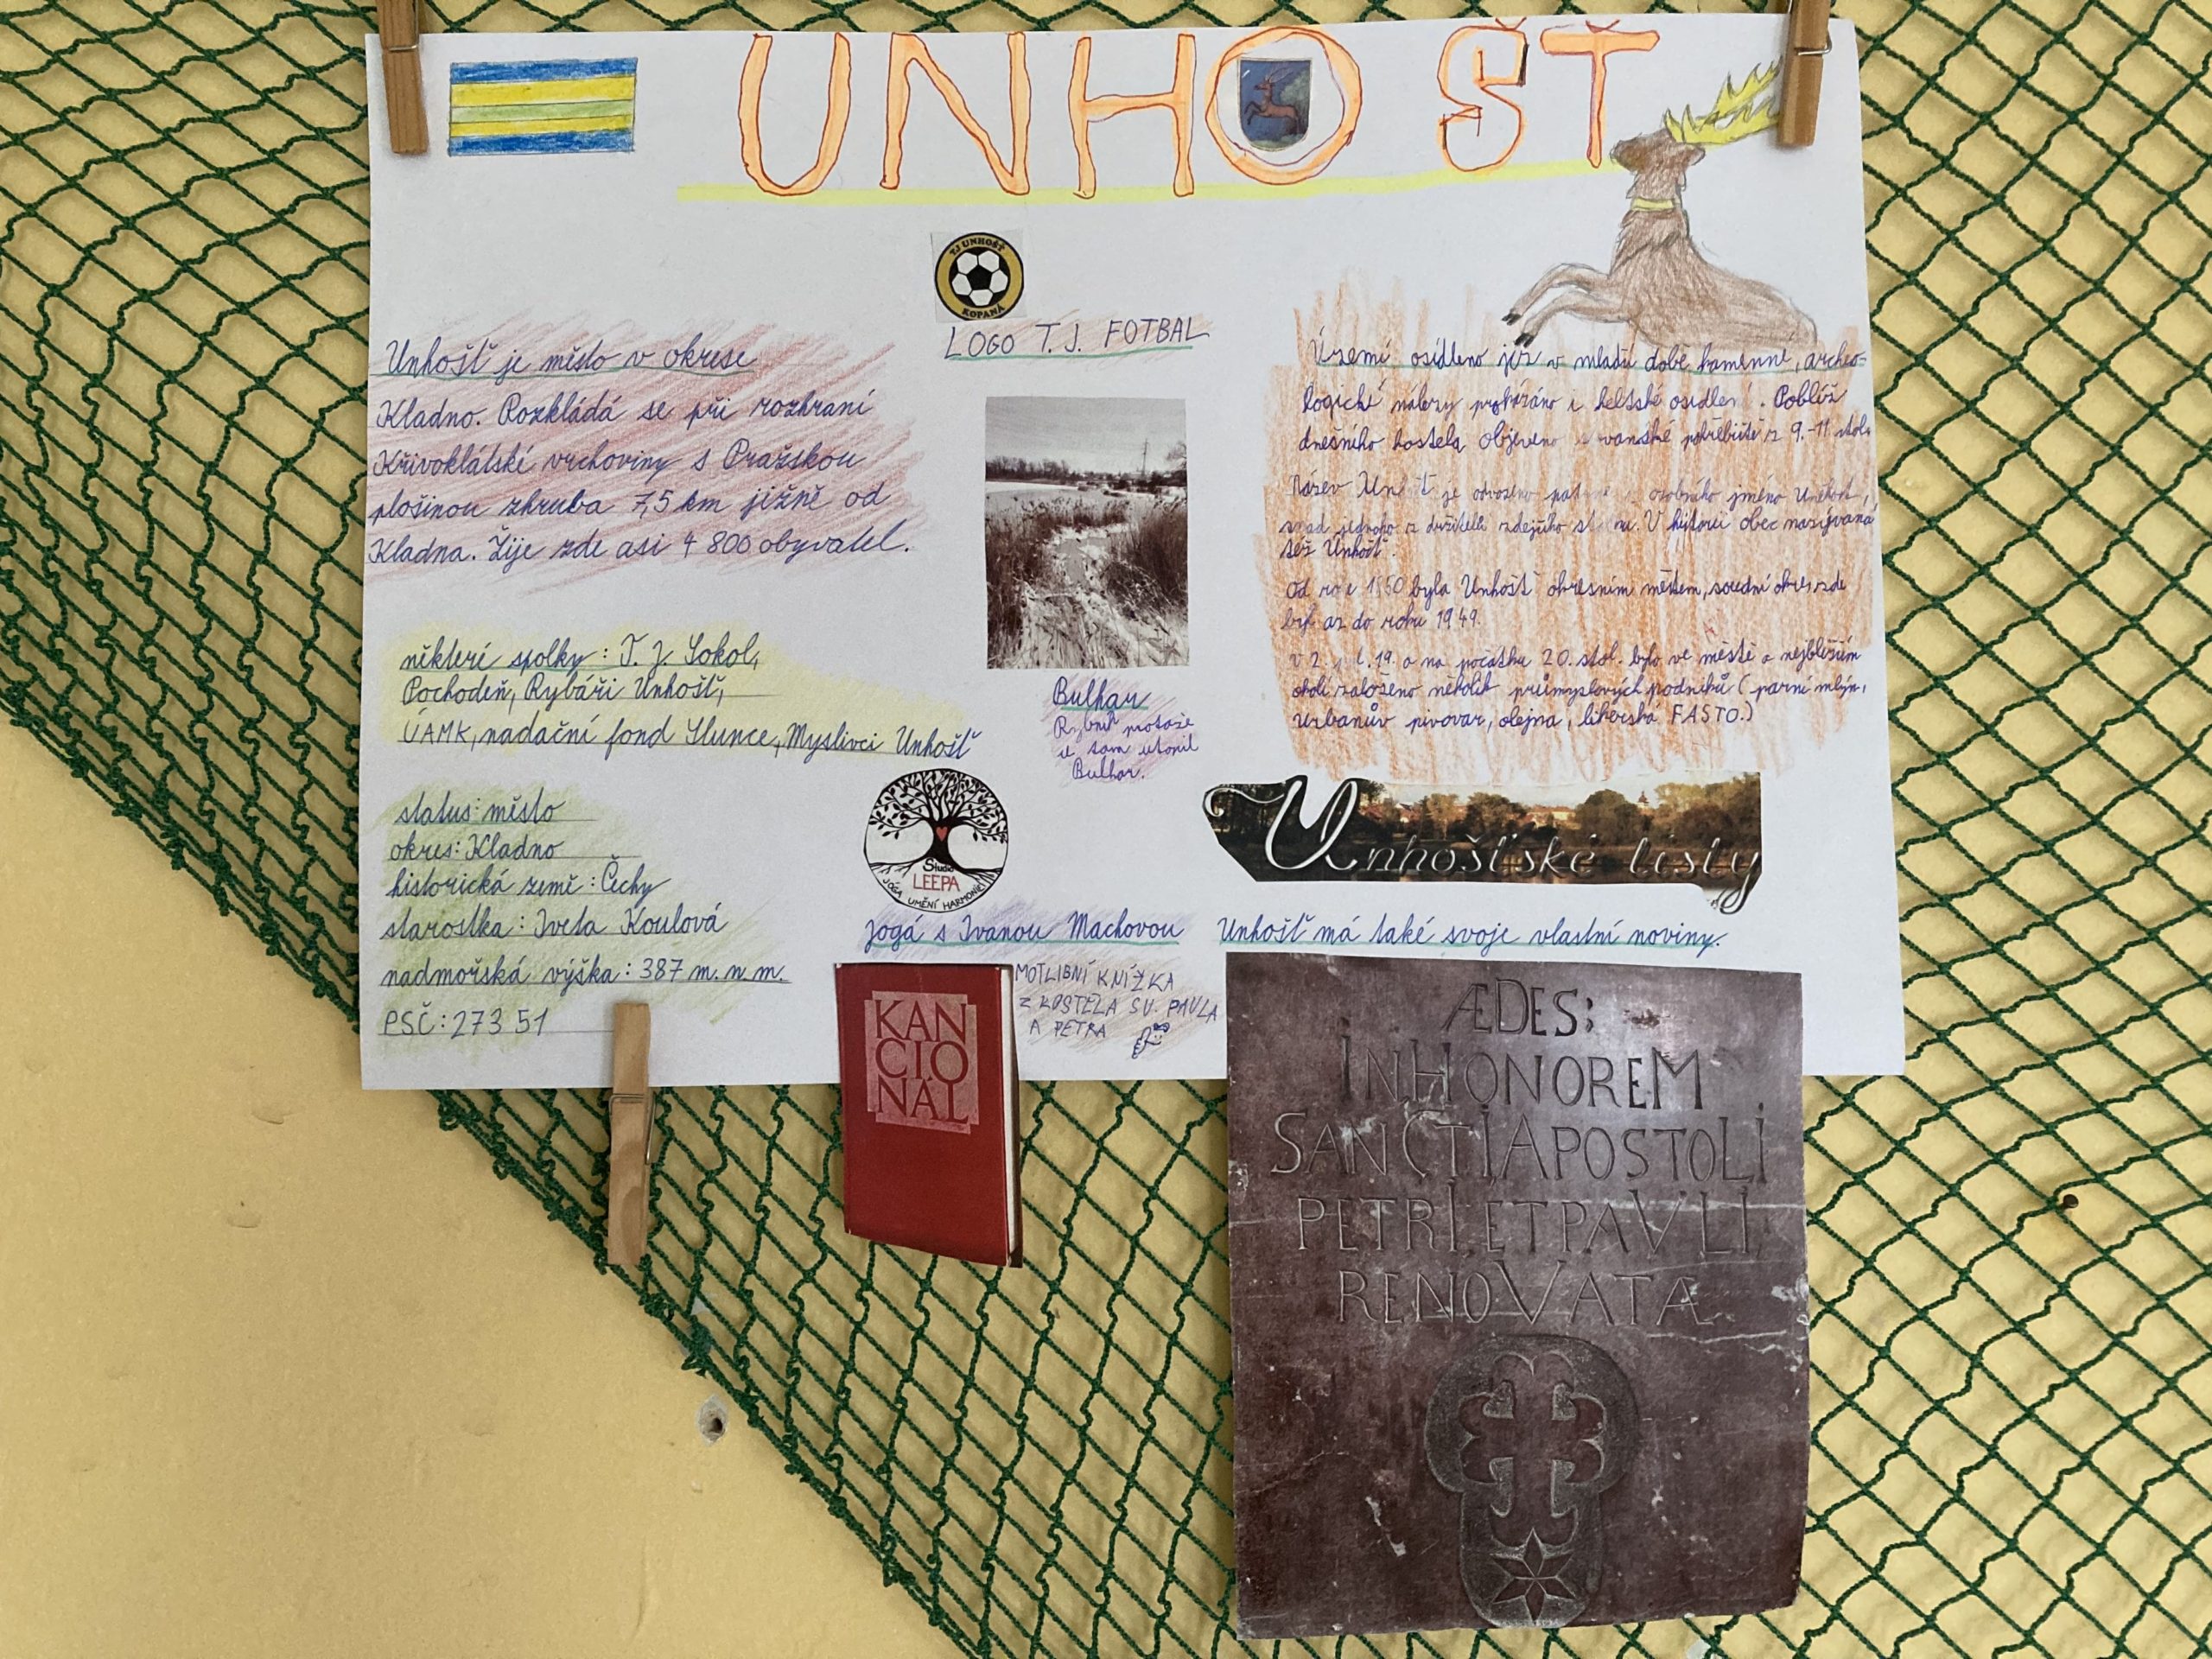 UNHOŠŤ
TJ UNHOŠŤ
KOPANÁ
LOGO T. J. FOTBAL
Unhošť je město v okrese
Kladno. Rozkládá se při rozhraní
Křivoklátské vrchoviny s Pražskou
plošinou zhruba 7,5 km jižně od
Kladna. Žije zde asi 4 800 obyvatel.
někteří spolky: T. J. Sokol,
Pochodeň, Rybáři Unhošť,
ÚAMK, nadační fond Slunce, Myslivci Unhošť
status: město
okres: Kladno
historická země: Čechy
starostka: Iveta Koulová
nadmořská výška: 387 m. n. m.
PSČ: 273 51
Bulhar
Rybník protože
se tam utopil
Bulhar.
Studio
LEEPA
JÓGA UMĚNÍ HARMONIE
Jogá s Ivanou Machovou
KAN
CIO
NÁL
MOTLIBNÍ KNÍŽKA
Z KOSTELA SV. PAVLA
A PETRA
Území osídleno již v mladší době kamenné, archeo-
logické nálezy prokázáno i keltské osídlení. Poblíž
dnešního kostela objeveno pohřebiště z 9.-11. stol.
Název je odvozeno osobního jména
snad jednoho z držitelů zdejšího V historii obec nazývaná
též Unhošť.
Od byla Unhošť okresním městem, soudní okres zde
byl až do roku 1949.
v 2. 19. a na počátku 20. stol. bylo ve městě a nejbližším
okolí založeno několik průmyslových podniků (parní mlýn,
urbanův pivovar, olejna, likérská FASTO.)
Unhošťské listy
Unhošť má také svoje vlastní noviny.
ÆDES:
INHONOREM
SANCTIAPOSTOLI
PETRI,ETPAVLI
RENOVATÆ